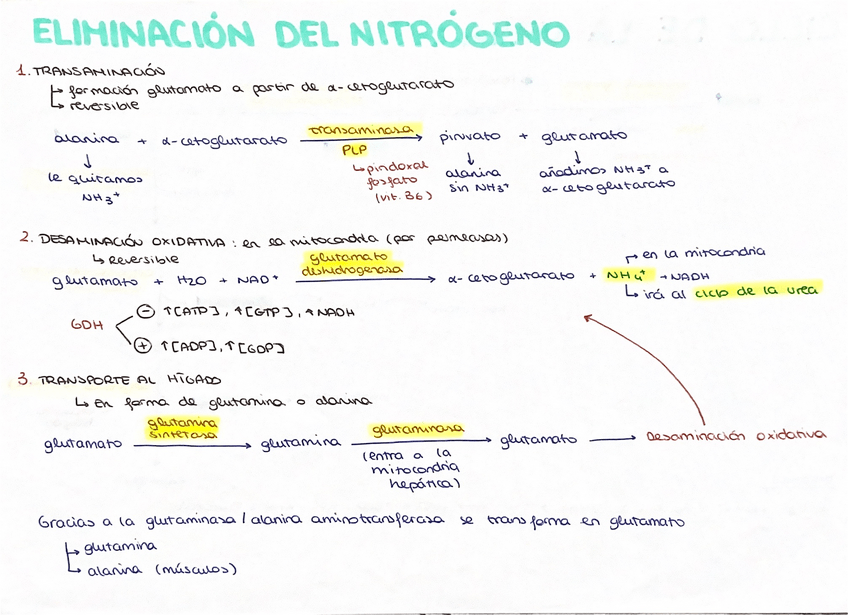 ELIMINACIÓN DEL NITRÓGENO
1. TRANSAMINACIÓN
↳ formación glutamato a partir de α-cetoglutarato
↳ reversible
alanina + α-cetoglutarato transaminasa → piruvato + glutamato
PLP
↓ ↳ piridoxal ↓ ↓
le quitamos fosfato alanina añadimos NH3+ a
NH3+ (vit. B6) sin NH3+ α-cetoglutarato
2. DESAMINACIÓN OXIDATIVA: en la mitocondria (por permeasas)
↳ reversible
glutamato + H2O + NAD+ glutamato deshidrogenasa → α-cetoglutarato + NH4+ + NADH
→ en la mitocondria
↳ irá al ciclo de la urea
GDH
⊖ ↑[ATP], ↑[GTP], ↑NADH
⊕ ↑[ADP], ↑[GDP]
3. TRANSPORTE AL HÍGADO
↳ en forma de glutamina o alanina
glutamato glutamina sintetasa → glutamina glutaminasa → glutamato → Desaminación oxidativa
(entra a la
mitocondria
hepática)
Gracias a la glutaminasa / alanina aminotransferasa se transforma en glutamato
↳ glutamina
↳ alanina (músculos)